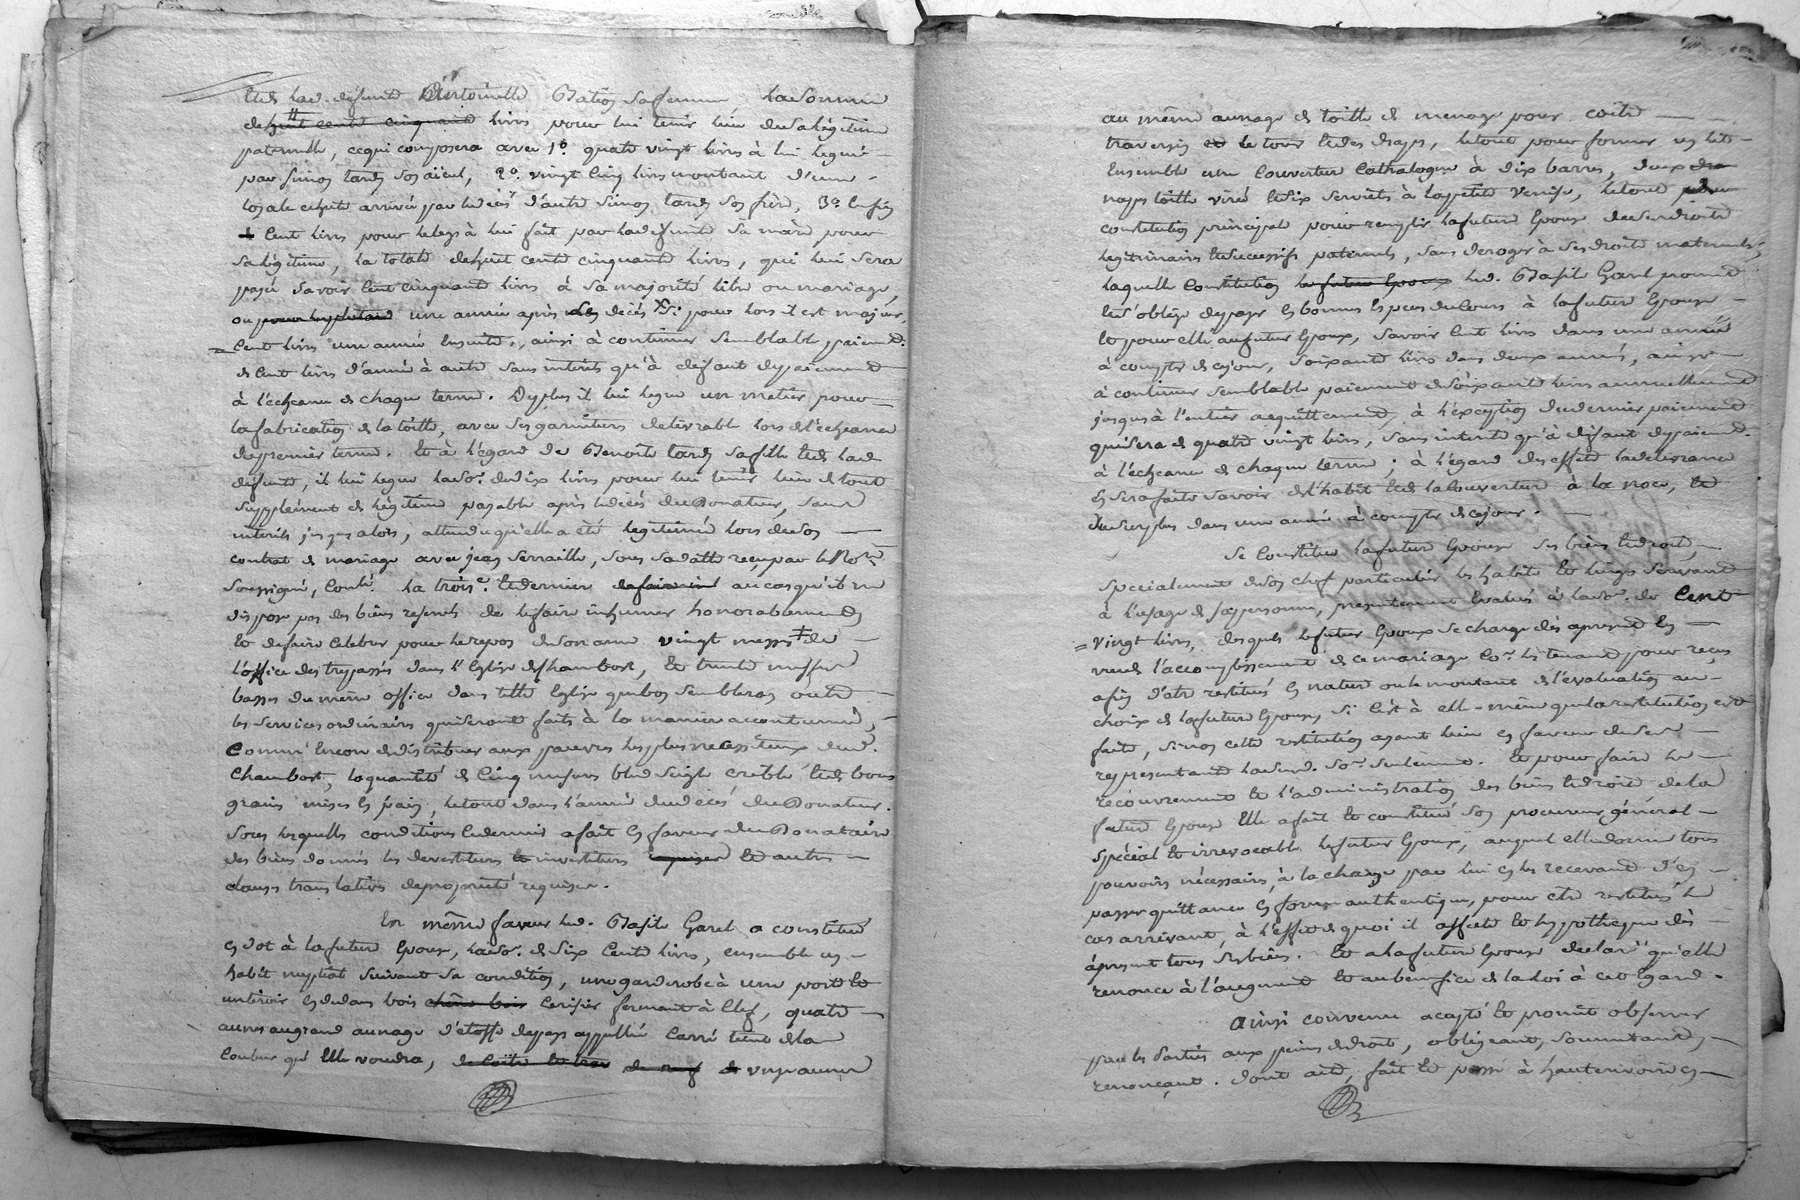 et de lad. defunte Antoinette Bation sa femme, la somme
de huit cents cinquante livres pour lui tenir lieu de sa légitime
paternelle, ce qui composera avec 1º. quatre vingt livres à lui legué
par Simon tardy son aieul, 2º. vingt cinq livres montant d'une
losale echute arrivée par le décès d'autre Simon tardy son frère, 3º. enfin
cent livres pour le legs à lui fait par lad defunte sa mère pour
sa légitime, la totale de huit cents cinquante livres, qui lui sera
payé savoir cent cinquante livres à sa majorité libre ou mariage,
ou une année après les décès Si pour lors il est majeur,
cent livres une année ensuite, ainsi à continuer semblable paiemt.
de cent livres d'année à autre sans intérêts qu'à defaut de paiement
à l'échéance de chaque terme. De plus il lui legue un métier pour
la fabrication de la toille, avec ses garnitures delivrable lors de l'échéance
du premier terme. Et à l'égard de Benoite tardy sa fille et de lad
defunte, il lui legue la so. de dix livres pour lui tenir lieu de tout
supplément de légitime payable après le décès du Donateur, sans
intérêts jusques alors, attendu qu'elle a été légitimée lors de son
contrat de mariage avec jean Serraille, sous sa datte reçu par le Nore.
soussigné, Conlé. La troise. et dernier au cas qu'il ne
dispose pas des biens reservés de le faire inhumer honorablement
et de faire celebrer pour le repos de son ame vingt messes de
l'office des trepassés dans l'Eglise de Chambost, et trente messes
basses du même office dans telle Eglise que bon semblera outre
les services ordinaires qui seront faits à la manière accoutumée,
comme encore de distribuer aux pauvres les plus necessiteux dud.
Chambost, la quantité de cinq mesures bled seigle criblé et de bons
grains mises en pain, le tout dans l'année du décès du Donateur.
Sous lesquelles conditions ce dernier a fait en faveur du Donataire
des biens donnés les devestitures et investitures requises et autres
clauses translatives de propriété requises.
En même faveur led. Basile Garel a constitué
en dot à la future Epouse, la so. de Six Cents livres, ensemble un
habit nuptial suivant sa condition, une garderobe à une porte et
untiroir en dedans bois chêne bois cerisier fermant à clef, quatre
aunes au grand aunage d'étoffe de pays appellée Carré teint de la
couleur qu'Elle voudra, de Coëte et tra de neuf de vingt aunes
au même aunage de toille de menage pour coëte
traversin et le tour et des draps, le tout pour former un lit
Ensemble une couverture Cathalogne à dix barres, deux dra
napes toille virée et six serviets à la petite Venise, le tout pour
constitution principale pour remplir la future Epouse de ses droits
legitimaires et successifs paternels, sans deroger à ses droits maternels;
laquelle constitution le futur Epoux led. Basile Garel promet
et s'oblige de payer en bonnes Especes du Cours à la future Epouse
et pour elle au futur Epoux, savoir cent livres dans une année
à compte de ce jour, soixante livres dans deux années, ainsi
à continuer semblable paiement de soixante livres annuellement
jusques à l'entier acquittement, à l'exception du dernier paiement
qui sera de quatre vingt livres, sans interets qu'à défaut de paiemt.
à l'echeance de chaque terme; à l'égard des effets la delivrance
en sera faite savoir de l'habit et de la couverture à la noce, et
du surplus dans une année à compte de ce jour.
Se Constitue la future Epouse ses biens et droits,
specialement de son chef particulier les habits et linges servant
à l'usage de sa personne, presentement évalués à la so. de Cent
vingt livres, desquels le futur Epoux se charge dès apresent en
vertu l'accomplissement de ce mariage come. les tenant pour reçus
afin d'etre restitués en nature ou le montant de l'évaluation au
choix de la future Epouse, si c'est à elle-même que la restitution est
faite, sinon cette restitution ayant lieu en faveur de ses
representants lasusd. so. seulement. Et pour faire le
recouvrement et l'administration des biens et droits de la
future Epouse Elle a fait et constitué son procureur général
spécial et irrevocable le futur Epoux, auquel elle donne tous
pouvoirs nécessaires, à la charge par lui en les recevant d'en
passer quittance en forme authentique, pour etre restitués le
cas arrivant, à l'effet de quoi il affecte et hypotheque dès
àpresent tous ses biens. Et a la future Epouse declaré qu'elle
renonce à l'augment et au benefice de la loi à cet égard.
Ainsi convenu accepté et promit observer
par les Parties aux peines de droit, obligeant, soumettant,
renonçant. Dont acte, fait et passé à hauterivoire en